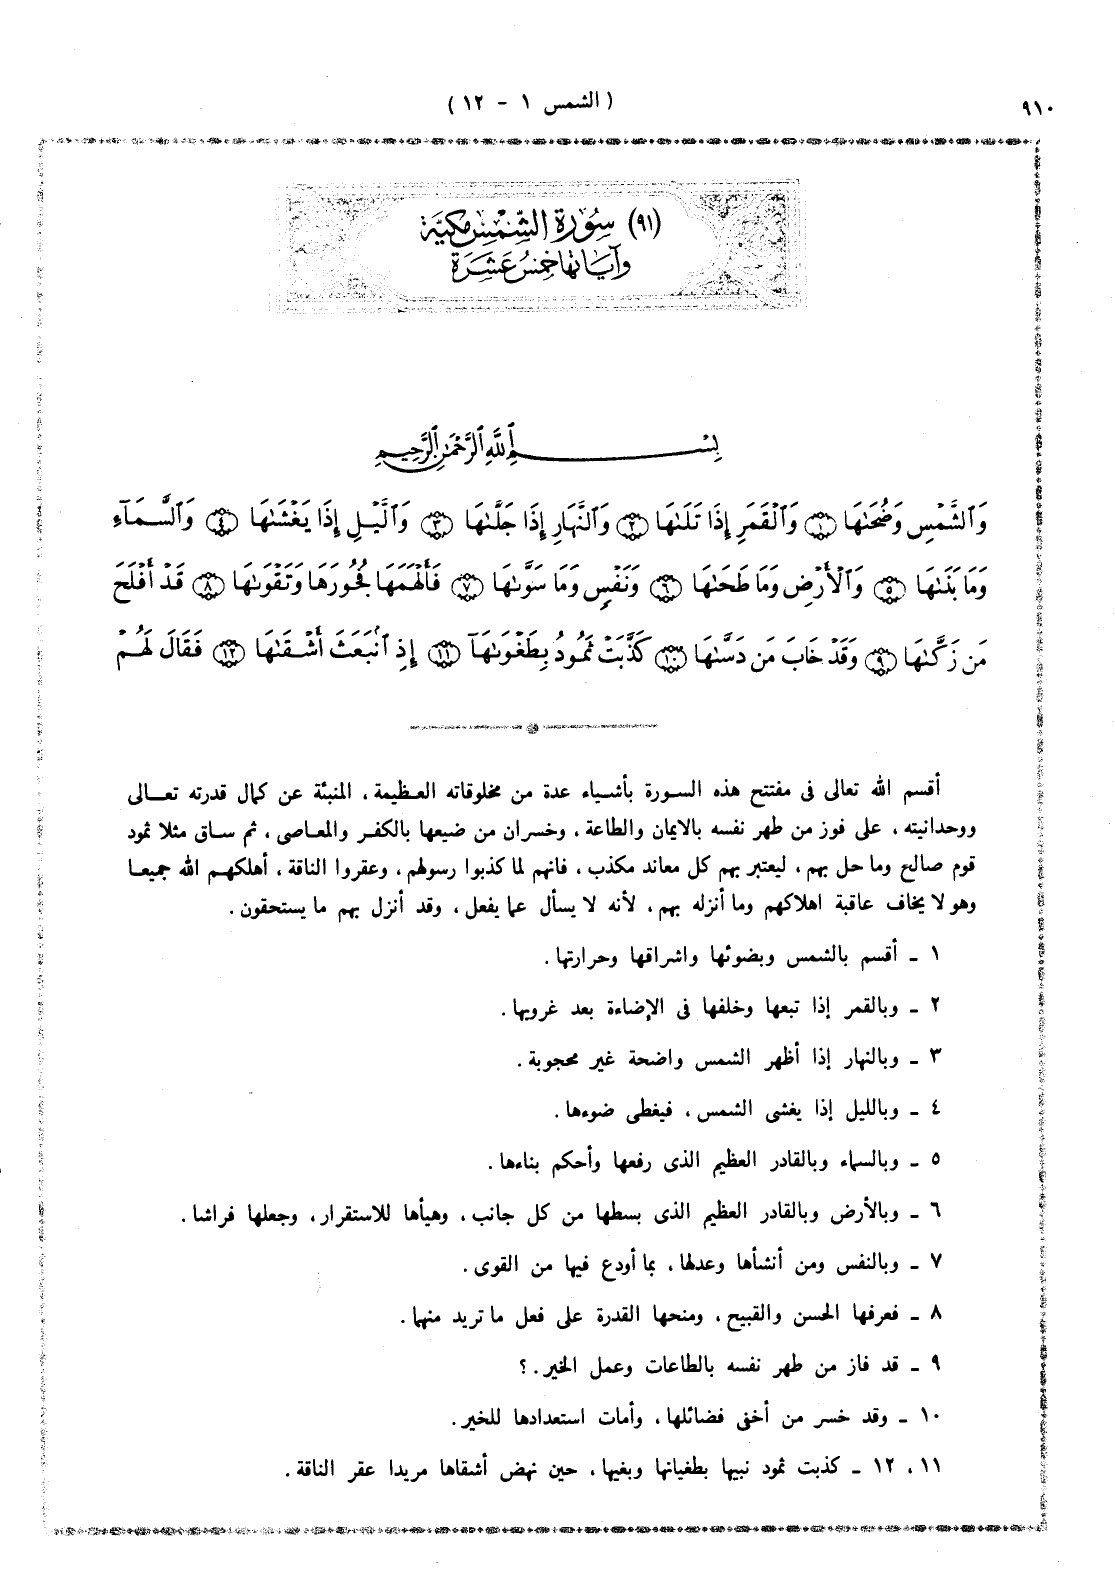 ٩١٠
( الشمس ١ - ١٢ )
(٩١) سُورَة الشَّمْسِ مَكيَّة
وَآيَاتهَا خمسُ عَشَرَة
بِسْمِ ٱللَّهِ ٱلرَّحْمَٰنِ ٱلرَّحِيمِ
وَٱلشَّمْسِ وَضُحَىٰهَا ١ وَٱلْقَمَرِ إِذَا تَلَىٰهَا ٢ وَٱلنَّهَارِ إِذَا جَلَّىٰهَا ٣ وَٱلَّيْلِ إِذَا يَغْشَىٰهَا ٤ وَٱلسَّمَآءِ
وَمَا بَنَىٰهَا ٥ وَٱلْأَرْضِ وَمَا طَحَىٰهَا ٦ وَنَفْسٍ وَمَا سَوَّىٰهَا ٧ فَأَلْهَمَهَا فُجُورَهَا وَتَقْوَىٰهَا ٨ قَدْ أَفْلَحَ
مَن زَكَّىٰهَا ٩ وَقَدْ خَابَ مَن دَسَّىٰهَا ١٠ كَذَّبَتْ ثَمُودُ بِطَغْوَىٰهَآ ١١ إِذِ ٱنۢبَعَثَ أَشْقَىٰهَا ١٢ فَقَالَ لَهُمْ
أقسم الله تعالى فى مفتتح هذه السورة بأشياء عدة من مخلوقاته العظيمة ، المنبئة عن كمال قدرته تعالى
ووحدانيته ، على فوز من طهر نفسه بالايمان والطاعة ، وخسران من ضيعها بالكفر والمعاصى ، ثم ساق مثلا ثمود
قوم صالح وما حل بهم ، ليعتبر بهم كل معاند مكذب ، فانهم لما كذبوا رسولهم ، وعقروا الناقة ، أهلكهم الله جميعا
وهو لا يخاف عاقبة اهلاكهم وما أنزله بهم ، لأنه لا يسأل عما يفعل ، وقد أنزل بهم ما يستحقون .
١ - أقسم بالشمس وبضوئها واشراقها وحرارتها .
٢ - وبالقمر إذا تبعها وخلفها فى الإضاءة بعد غروبها .
٣ - وبالنهار إذا أظهر الشمس واضحة غير محجوبة .
٤ - وبالليل إذا يغشى الشمس ، فيغطى ضوءها .
٥ - وبالسماء وبالقادر العظيم الذى رفعها وأحكم بناءها .
٦ - وبالأرض وبالقادر العظيم الذى بسطها من كل جانب ، وهيأها للاستقرار ، وجعلها فراشا .
٧ - وبالنفس ومن أنشأها وعدلها ، بما أودع فيها من القوى .
٨ - فعرفها الحسن والقبيح ، ومنحها القدرة على فعل ما تريد منهما .
٩ - قد فاز من طهر نفسه بالطاعات وعمل الخير . ؟
١٠ - وقد خسر من أخفى فضائلها ، وأمات استعدادها للخير .
١١ ، ١٢ - كذبت ثمود نبيها بطغيانها وبغيها ، حين نهض أشقاها مريدا عقر الناقة .